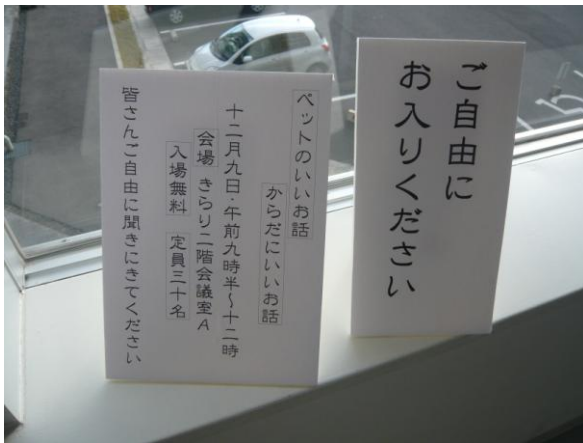 ご自由に
お入りください
ペットのいいお話
からだにいいお話
十二月九日・午前九時半～十二時
会場 きらり二階会議室A
入場無料 定員三十名
皆さんご自由に聞きにきてください